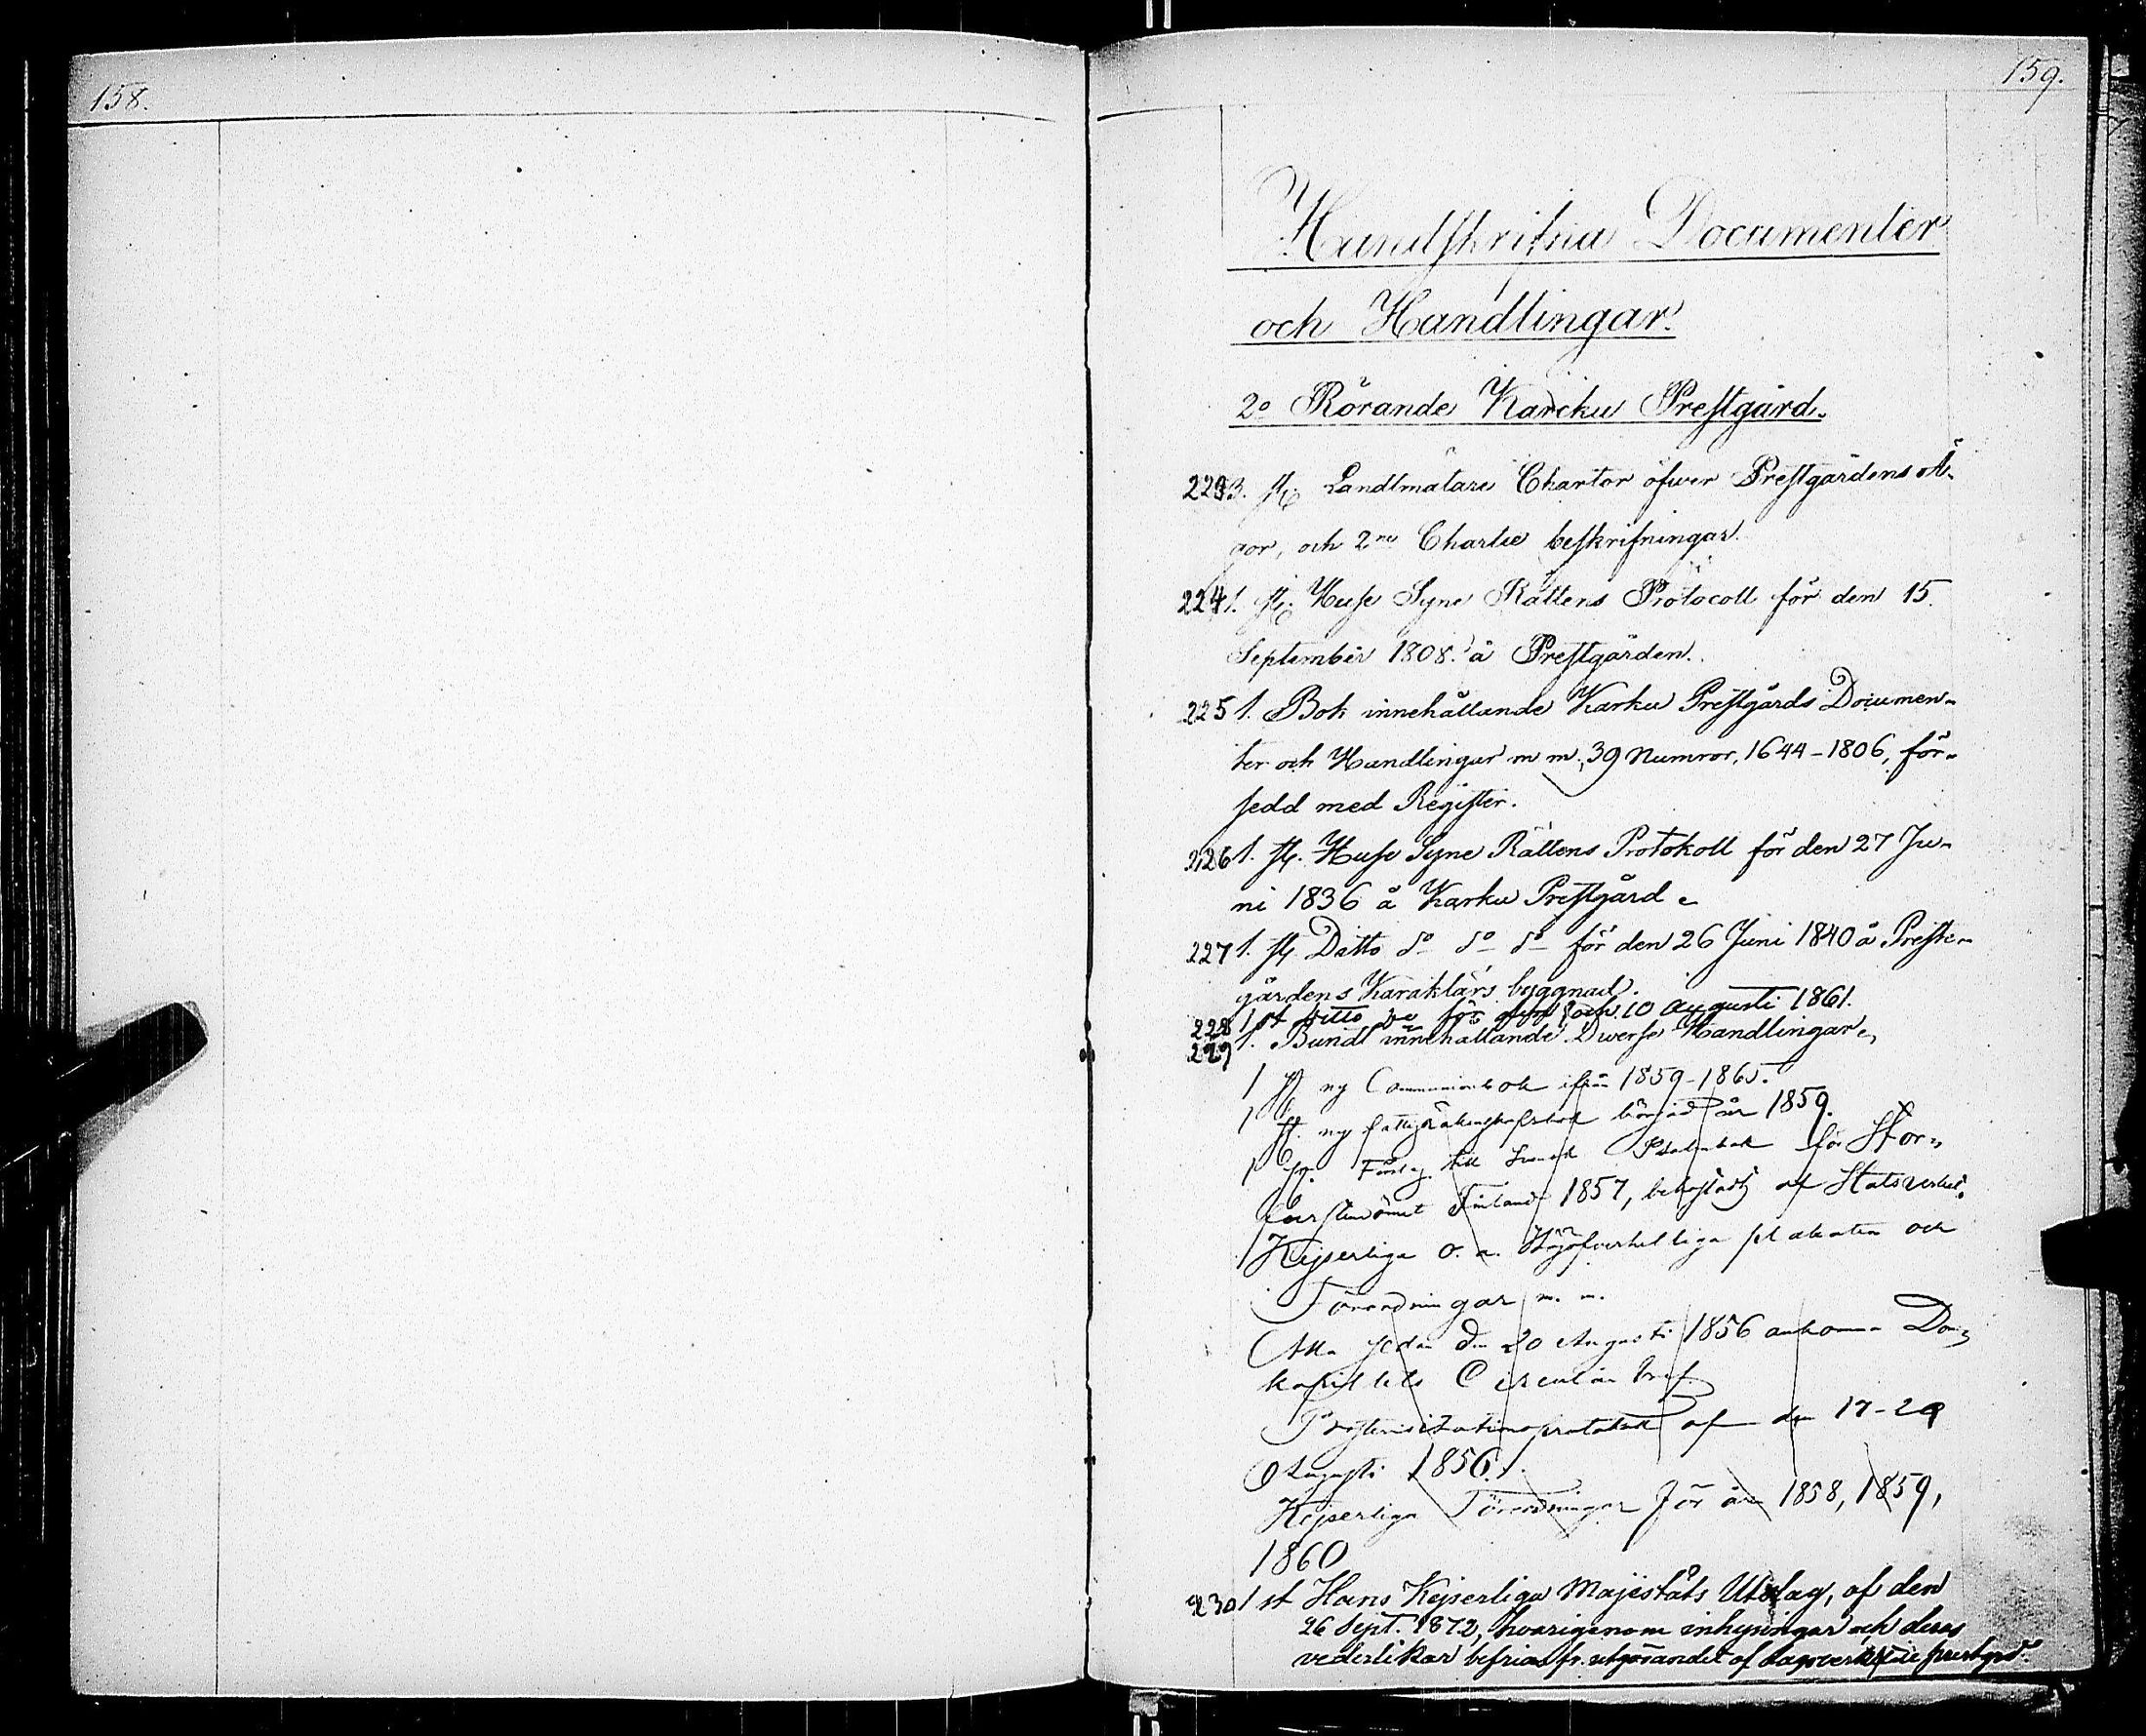 158.
159.
Handskrifna Documenter
och Handlingar.
2o Rörande Karcku Prestgård.
223 3. st. Landtmätare Chartor öfver Prestgårdens Ä-
gor, och 2ne Charte beskrifningar.
224 1. st. Huse Syne Rättens Protocoll för den 15.
September 1808. å Prestgården.
225 1. Bok innehållande Karku Prestgårds Documen-
ter och Handlingar m m, 39 Numror, 1644-1806, för-
sedd med Register.
226 1. st. Huse Syne Rättens Protokoll för den 27 Ju-
ni 1836 å Karku Prestgård
227 1. st. Ditto do do do för den 26 Juni 1840 å Prest-
gårdens Karaktärs byggnad.
228 1 st ditto för den och 10 Augusti 1861.
229 1. Bundt innehållande Diverse Handlingar
1 st ny Communionbok ifrån 1859-1865.
1 st. ny fattigräkenskapsbok börjad år 1859.
1 st. Förslag till Svensk Psalmbok för Stor-
furstendömet Finland 1857, bekostadt af Statsverket.
Kejserliga o. a. plakater och
Förordningar m. m.
Alla sedan den 20 Augusti 1856 ankomna Dom-
kapitlets Circulär bref
Prostvisitationsprotokoll af den 17-20
Augusti 1856.
Kejserliga Förordningar för åren 1858, 1859,
1860
230 1 st Hans Kejserliga Majestäts Utslag, af den
26 Sept. 1872, hvarigenom inhysingar och deras
vederlikar befrias fr. utgörandet af dagsverken i prestgrd.